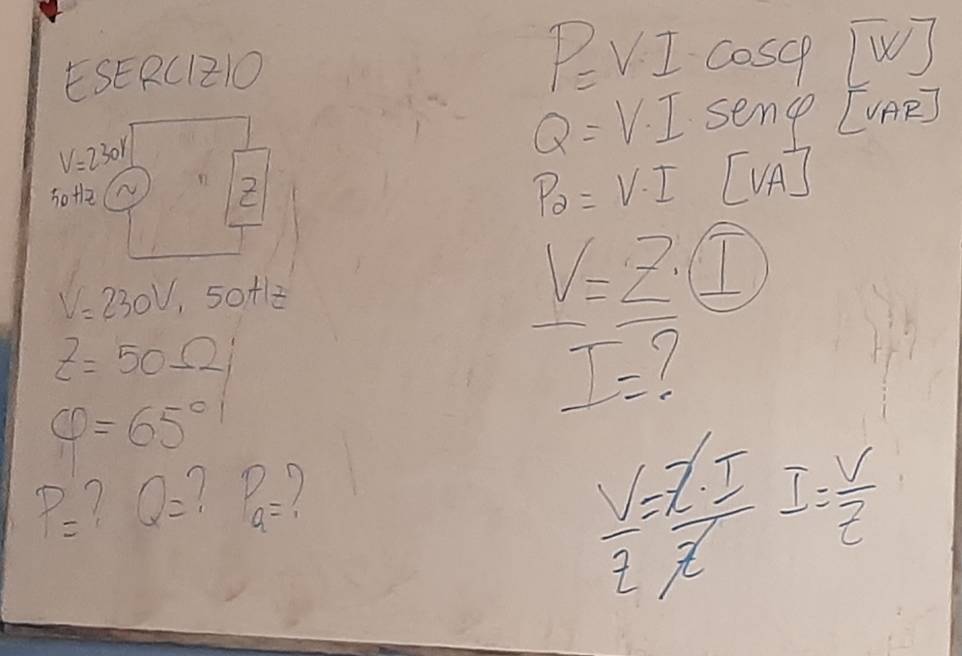 ESERCIZIO
V=230V
50Hz
~
Z
V=230V, 50Hz
Z= 50Ω
φ= 65°
P=? Q=? Pa=?
P=V·I·cosφ [W]
Q=V·I·senφ [VAR]
Pa=V·I [VA]
V=Z·I
I=?
V/Z=Z·I/Z I=V/Z